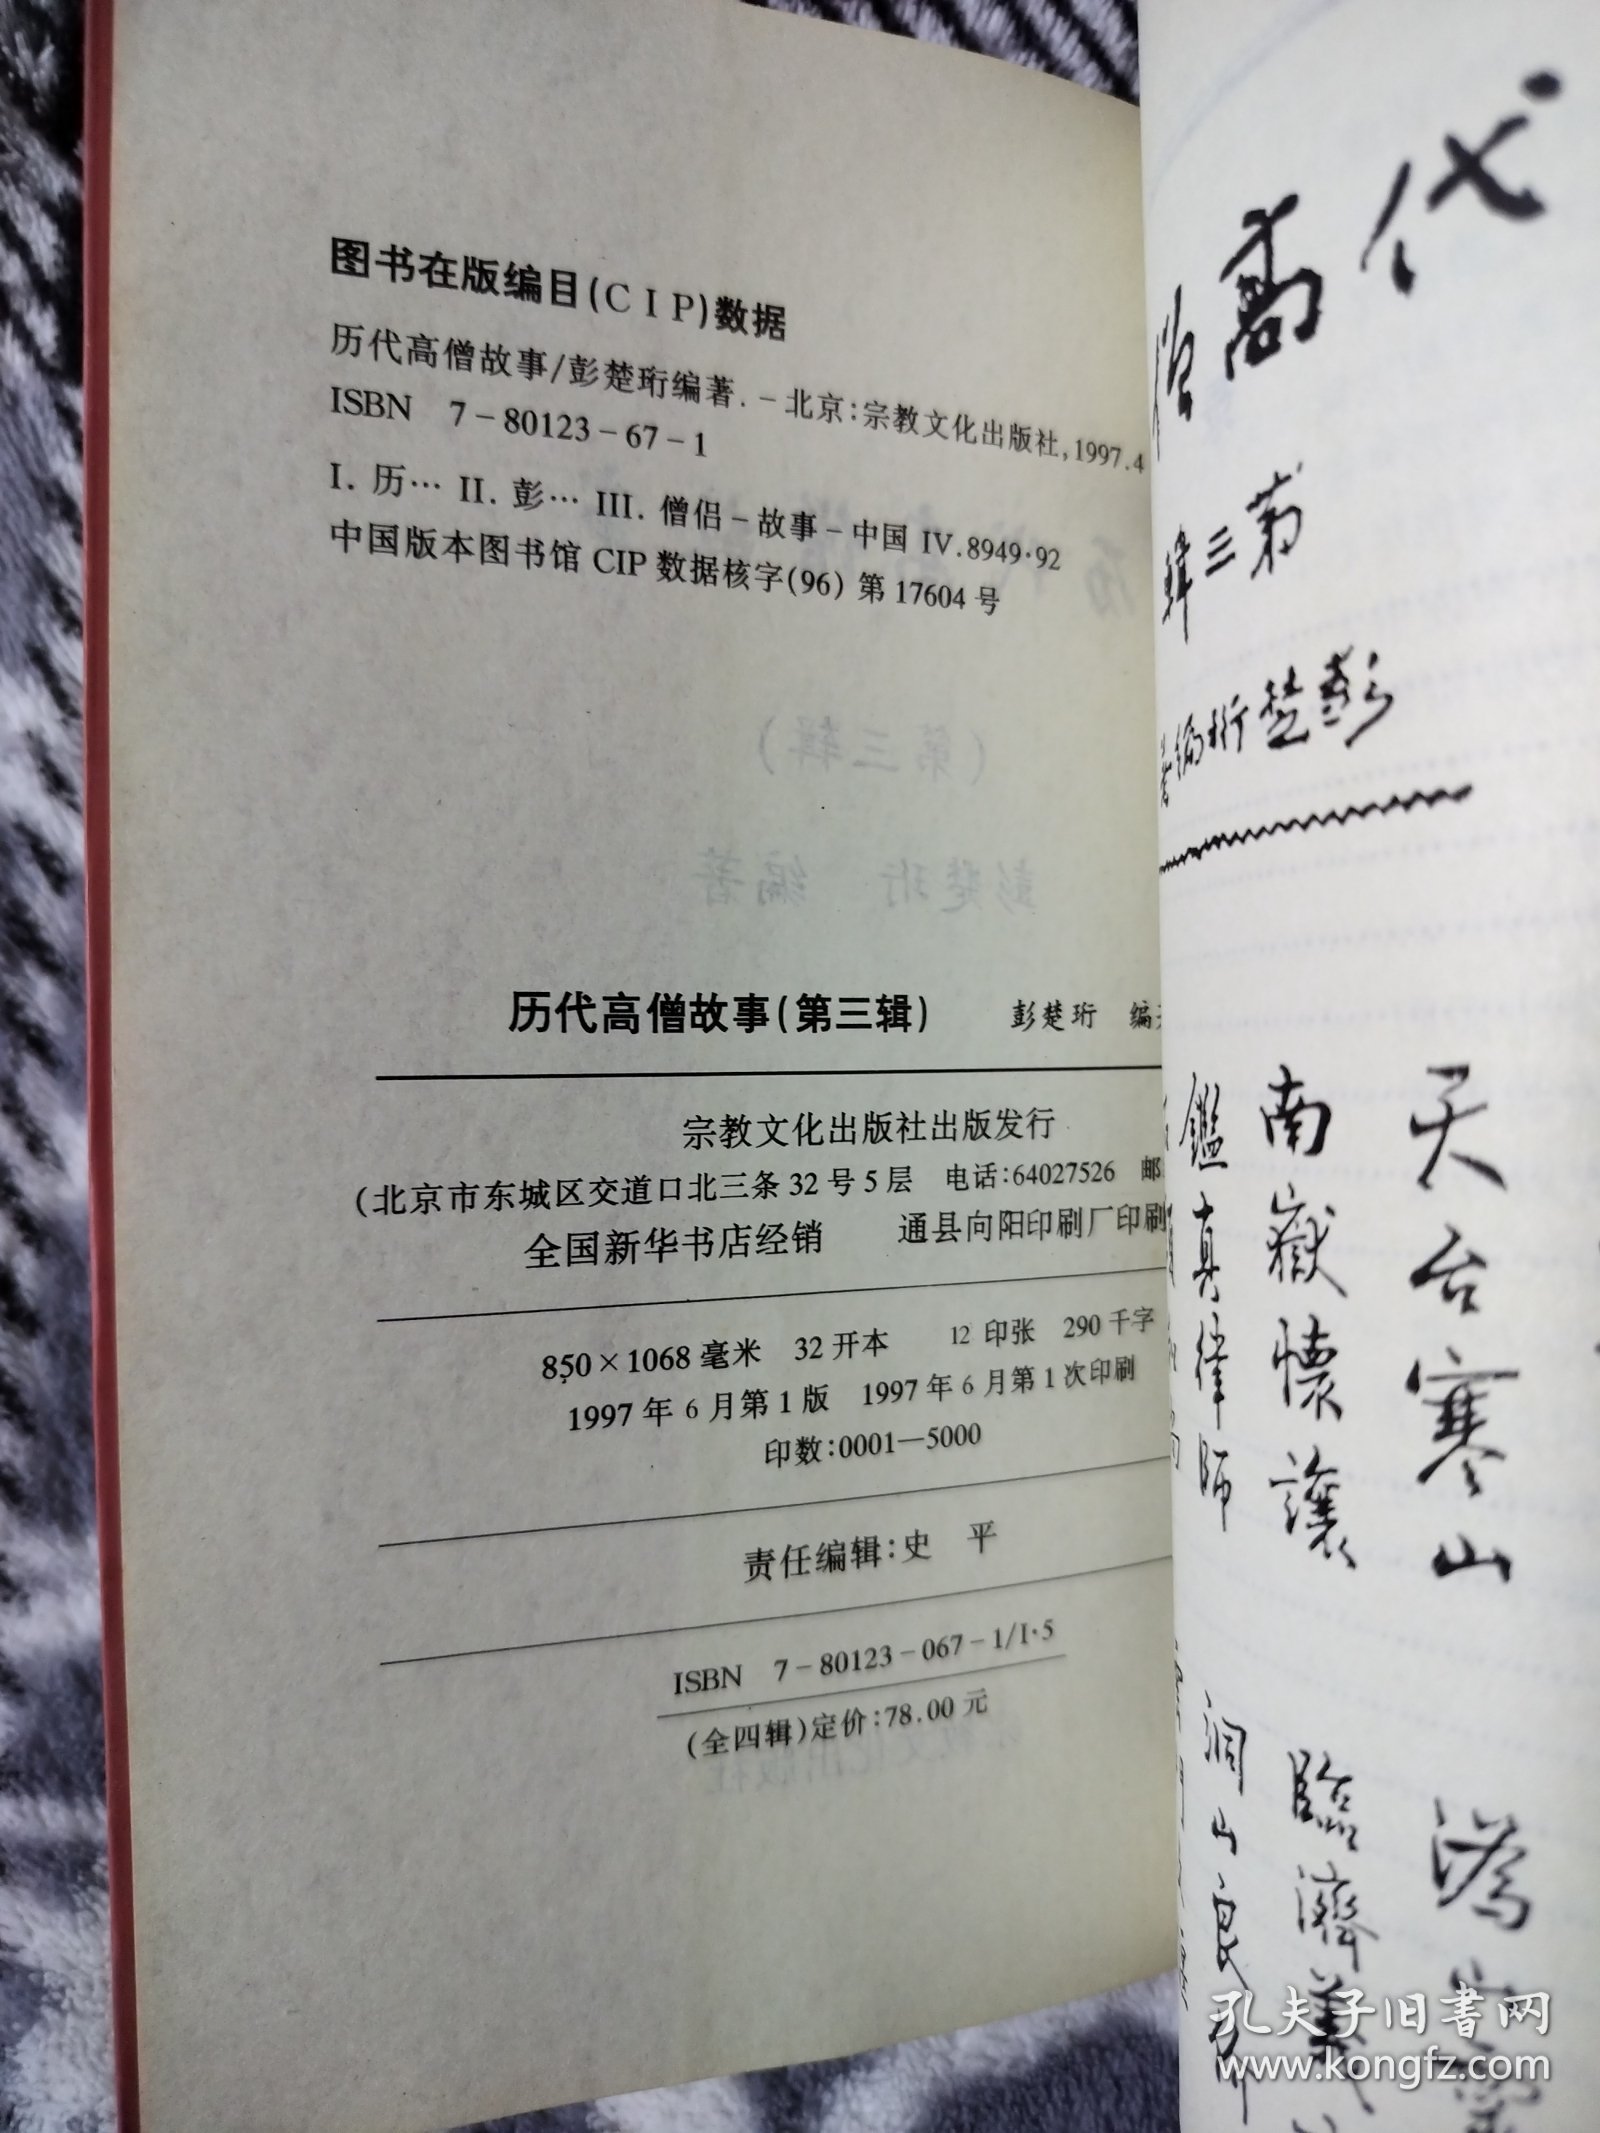 图书在版编目(CIP)数据
历代高僧故事/彭楚珩编著.-北京:宗教文化出版社,1997.4
ISBN 7-80123-67-1
I.历… II.彭… III.僧侣-故事-中国 IV.8949·92
中国版本图书馆CIP数据核字(96)第17604号
历代高僧故事(第三辑) 彭楚珩 编
宗教文化出版社出版发行
(北京市东城区交道口北三条32号5层 电话:64027526 邮
全国新华书店经销 通县向阳印刷厂印刷
850×1068毫米 32开本 12印张 290千字
1997年6月第1版 1997年6月第1次印刷
印数:0001—5000
责任编辑:史 平
ISBN 7-80123-067-1/I·5
(全四辑)定价:78.00元
代高僧
第三辑
彭楚珩编著
天台寒山
南嶽懷讓
鑑真律师
溈
臨濟義
洞山良
孔夫子旧书网
www.kongfz.com